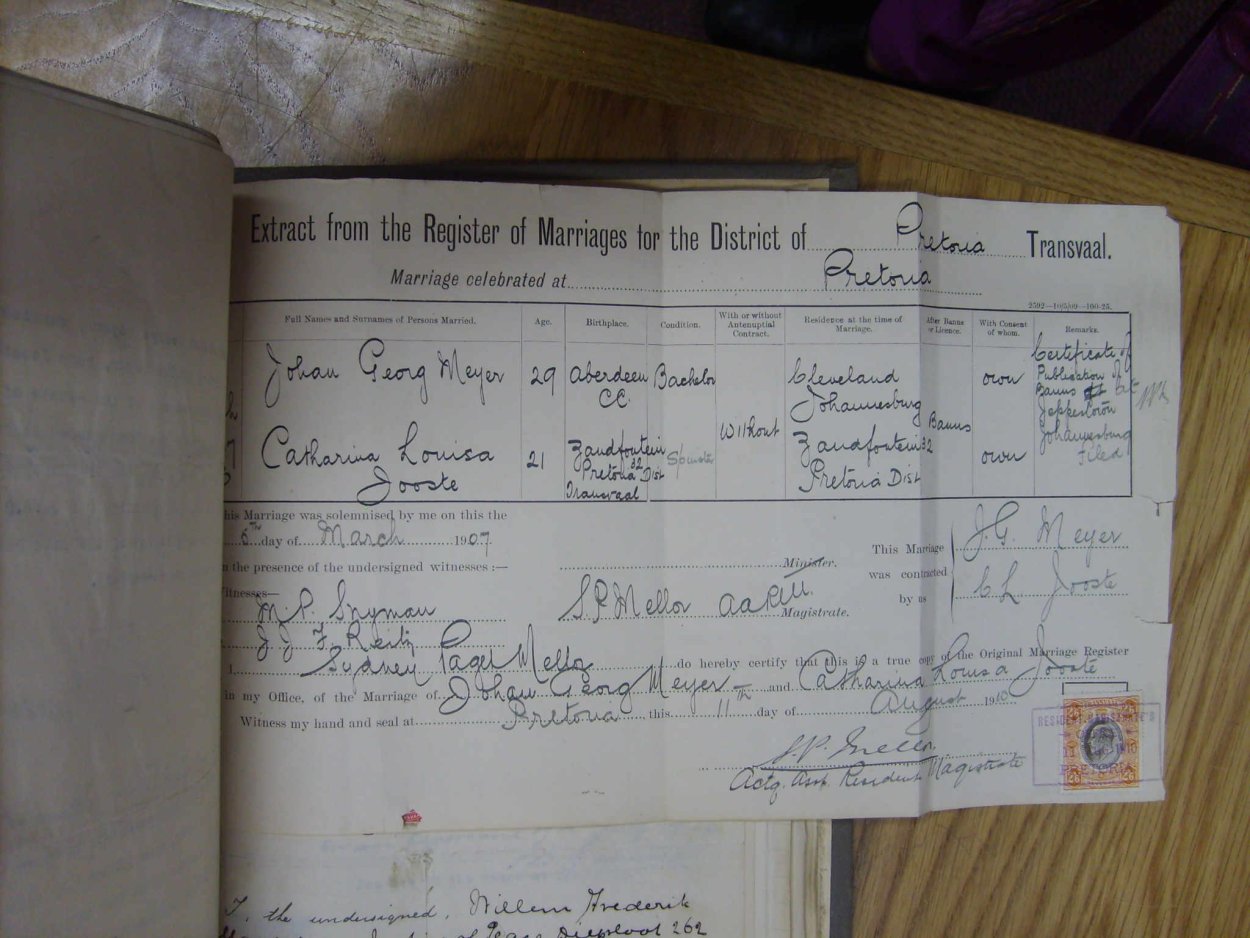 Extract from the Register of Marriages for the District of Pretoria Transvaal.
Marriage celebrated at Pretoria
2592—10|5|09—100-25.
Full Names and Surnames of Persons Married. Age. Birthplace. Condition. With or without Antenuptial Contract. Residence at the time of Marriage. After Banns or Licence. With Consent of whom. Remarks.
Johan Georg Meyer 29 Aberdeen CC. Bachelor Cleveland Johannesburg own
Certificate of
Publication of
Banns at
Jeppestown
Johannesburg
filed
Without Banns
Catharina Louisa Jooste 21 Zandfontein 32 Pretoria Dist Transvaal Spinster Zandfontein 32 Pretoria Dist own
his Marriage was solemnised by me on this the
6TH day of March 1907.
n the presence of the undersigned witnesses :—
Minister.
This Marriage was contracted by us
J.G. Meyer
C L Jooste
itnesses—
M. P. Snyman
S. P. Mellor AARM.
Magistrate.
J J F. Reitz
I, Sydney Pagel Mellor do hereby certify that this is a true copy of the Original Marriage Register
in my Office, of the Marriage of Johan Georg Meyer and Catharina Louisa Jooste
Witness my hand and seal at Pretoria this 11TH day of August 1910
S. P. Mellor
Actg. Asst. Resident Magistrate
RESIDENT MAGISTRATE'S
PRETORIA
2/6 2/6
I, the undersigned, Willem Frederik
of Peace Diepsloot 262